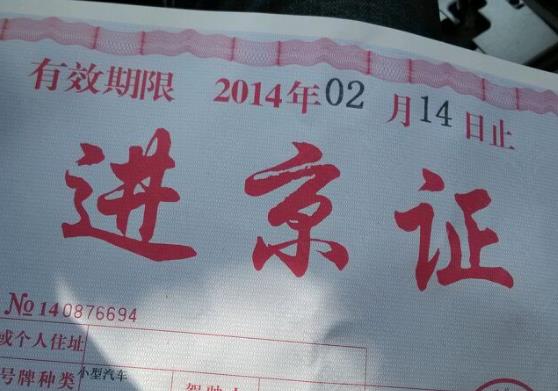 有效期限 2014年02月14日止
进京证
No 140876694
或个人住址
号牌种类 小型汽车